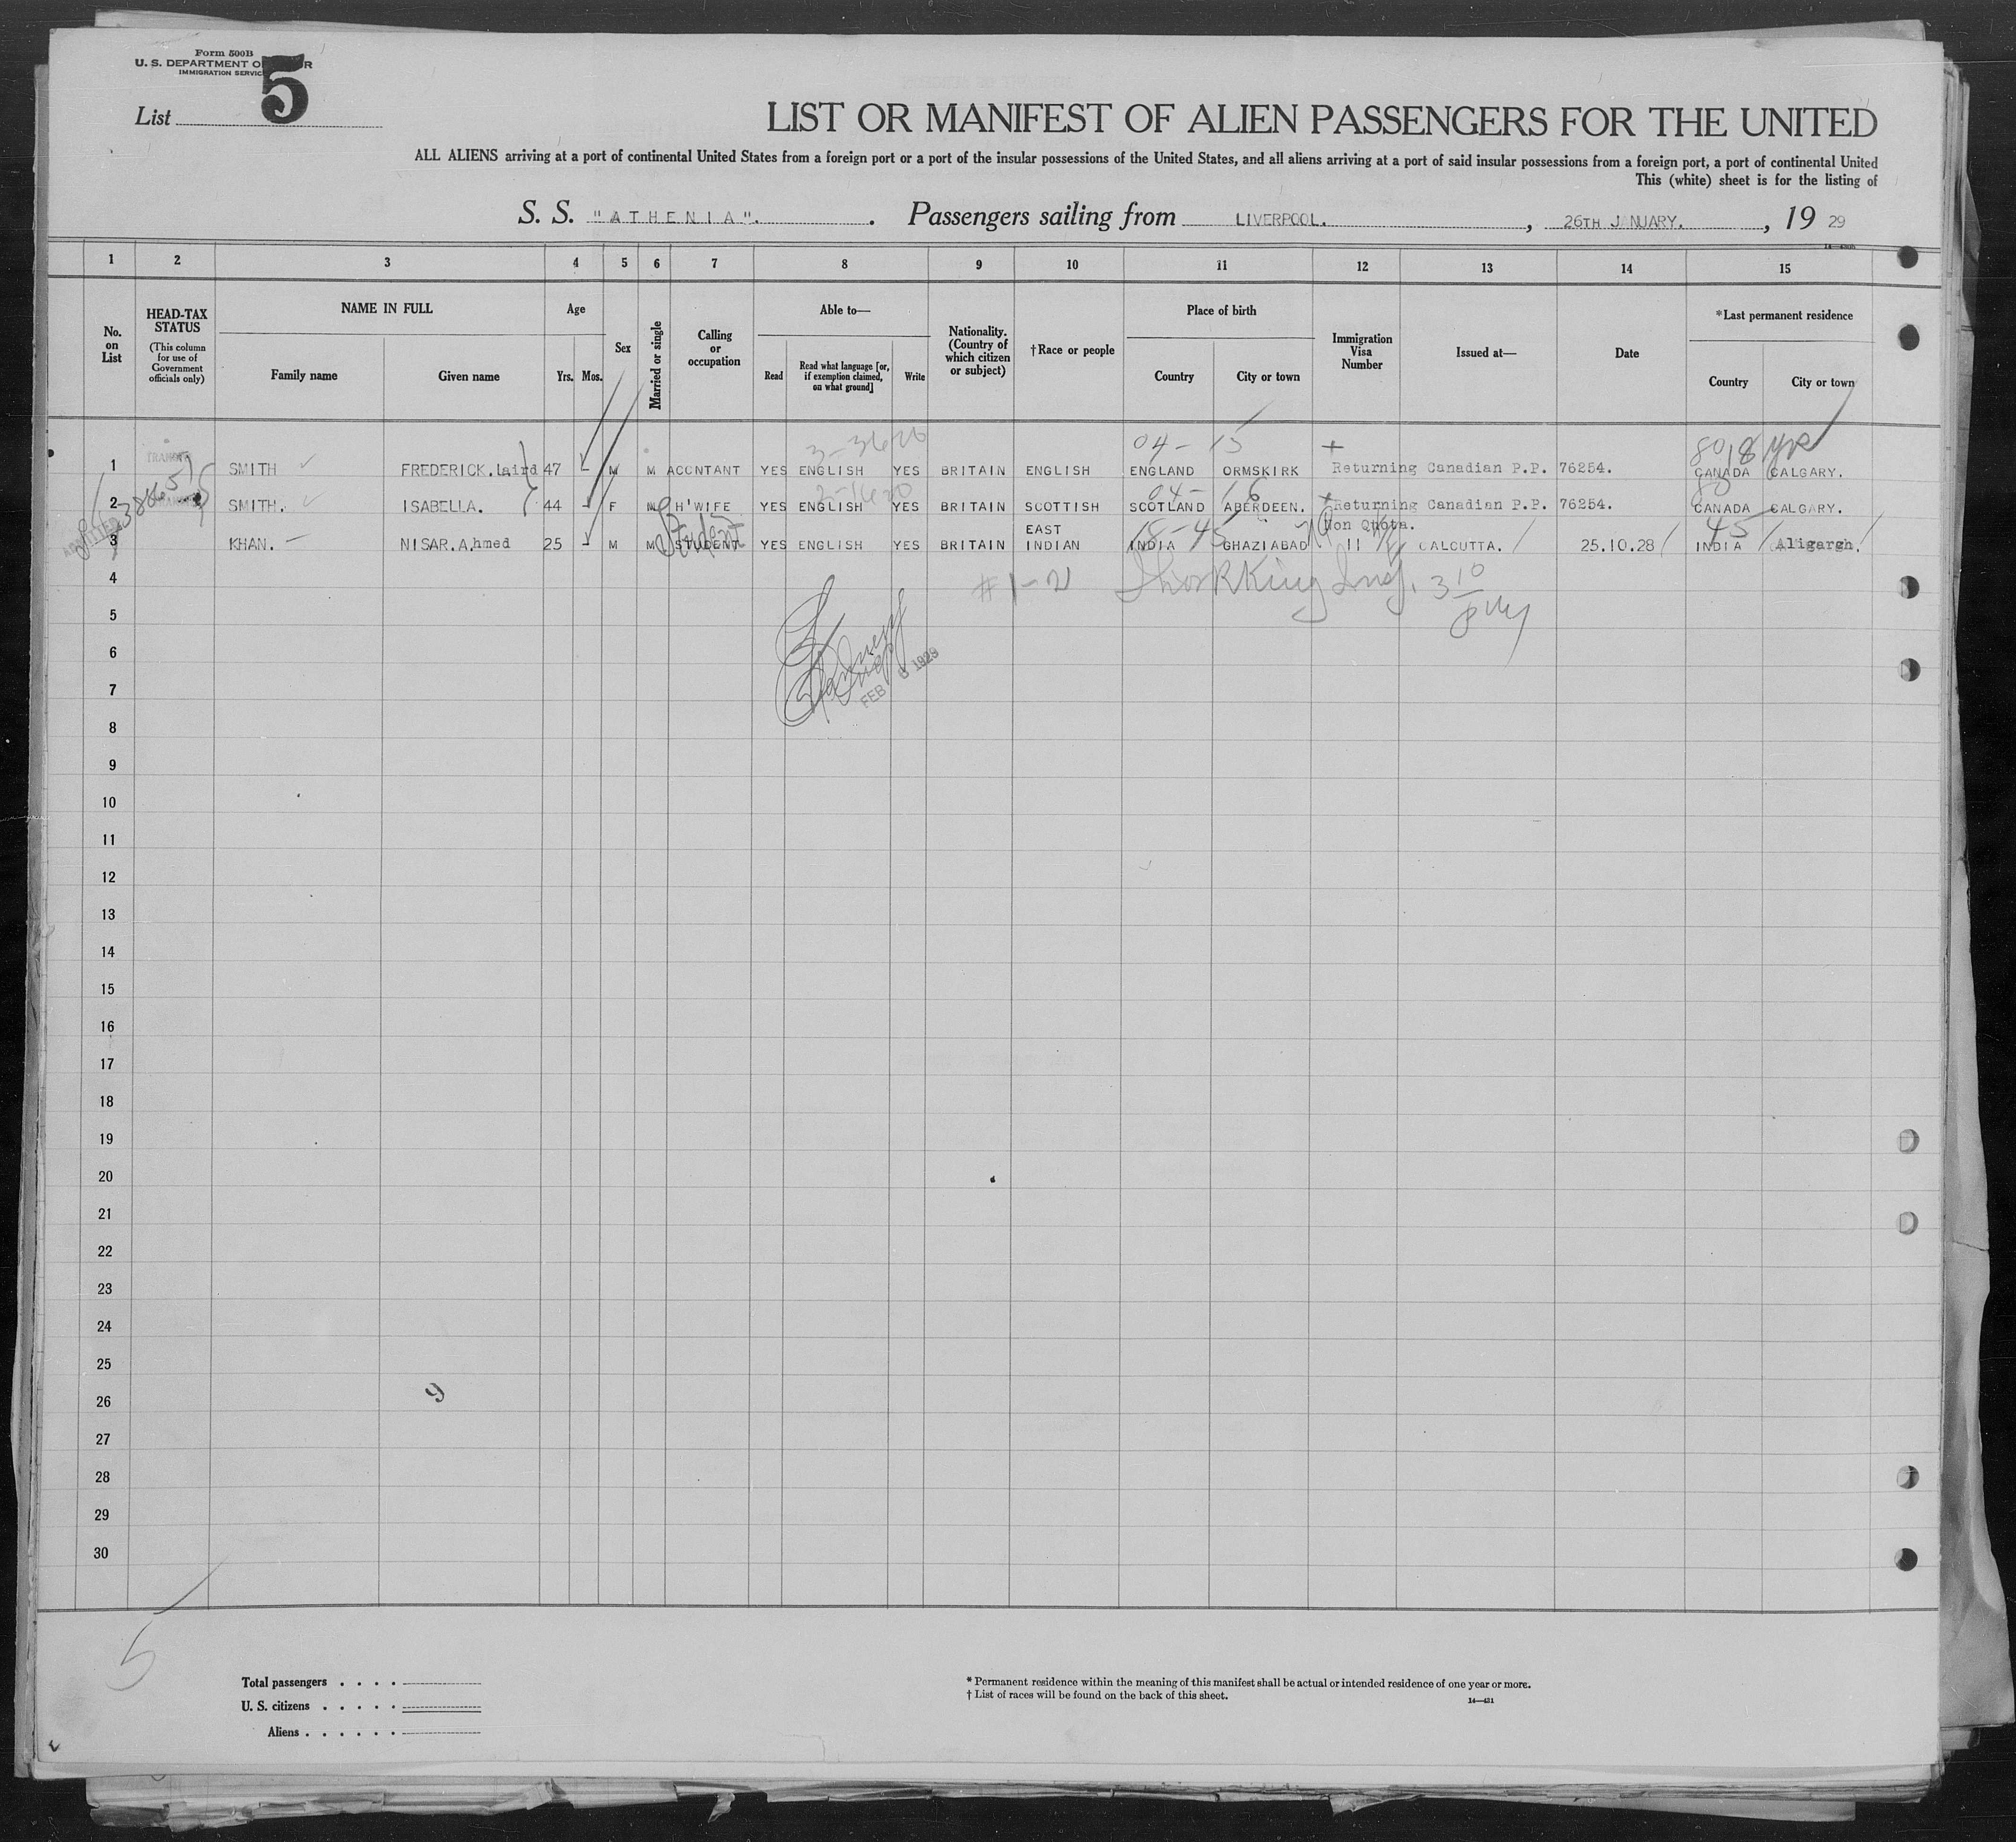 Form 500B
U. S. DEPARTMENT OF
IMMIGRATION SERVICE
List 5
LIST OR MANIFEST OF ALIEN PASSENGERS FOR THE UNITED
ALL ALIENS arriving at a port of continental United States from a foreign port or a port of the insular possessions of the United States, and all aliens arriving at a port of said insular possessions from a foreign port, a port of continental United
This (white) sheet is for the listing of
S. S. "ATHENIA". Passengers sailing from LIVERPOOL. , 26TH JANUARY. , 19 29
1 2 3 4 5 6 7 8 9 10 11 12 13 14 15
No. on List
HEAD-TAX STATUS
(This column for use of Government officials only)
NAME IN FULL
Family name Given name
Age
Yrs. Mos.
Sex
Married or single
Calling or occupation
Able to—
Read
Read what language [or, if exemption claimed, on what ground]
Write
Nationality. (Country of which citizen or subject)
†Race or people
Place of birth
Country City or town
Immigration Visa Number
Issued at—
Date
*Last permanent residence
Country City or town
3-3620 04- 15 + 80 18 yrs
1 SMITH FREDERICK.Laird 47 - M M ACCNTANT YES ENGLISH YES BRITAIN ENGLISH ENGLAND ORMSKIRK Returning Canadian P.P. 76254. CANADA CALGARY.
04- 16 + 80
2 SMITH. ISABELLA. 44 - F M H'WIFE YES ENGLISH YES BRITAIN SCOTTISH SCOTLAND ABERDEEN. Returning Canadian P.P. 76254. CANADA CALGARY.
Student 18-45 Non Quota. 45
3 KHAN. NISAR.Ahmed 25 - M M STUDENT YES ENGLISH YES BRITAIN EAST INDIAN INDIA GHAZIABAD 11 CALCUTTA. 25.10.28 INDIA Aligargh.
4
#1-2
5
6
FEB 1929
7
8
9
10
11
12
13
14
15
16
17
18
19
20
21
22
23
24
25
26
27
28
29
30
5
Total passengers . . . .
U. S. citizens . . . . .
Aliens . . . . . .
* Permanent residence within the meaning of this manifest shall be actual or intended residence of one year or more.
† List of races will be found on the back of this sheet.
14—431